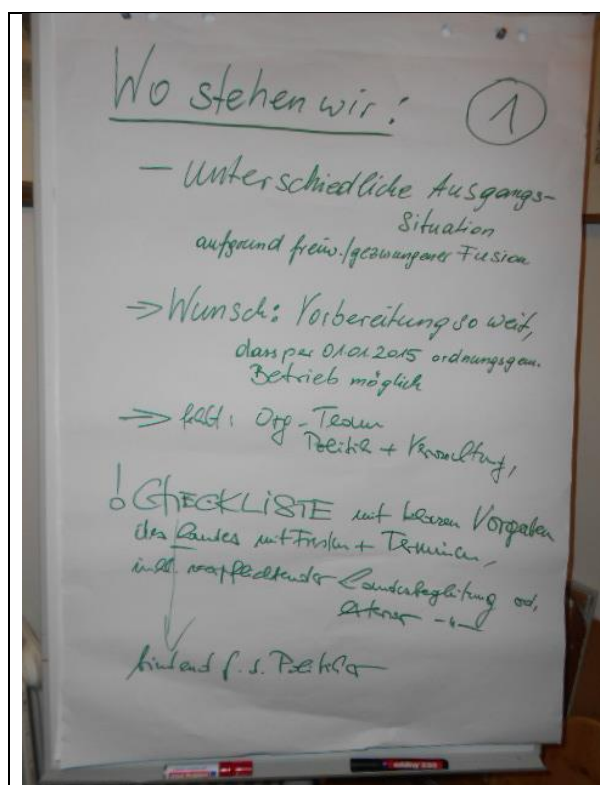 Wo stehen wir:
1
— unterschiedliche Ausgangs-
Situation
aufgrund freiw./gezwungener Fusion
→ Wunsch: Vorbereitung so weit,
dass per 01.01.2015 ordnungsgem.
Betrieb möglich
→ fehlt: Org-Team
Politik + Verwaltung,
! CHECKLISTE mit klaren Vorgaben
des Landes mit Fristen + Terminen,
inkl. verpflichtender Landesbegleitung od.
externer -"-
bindend f. d. Politiker